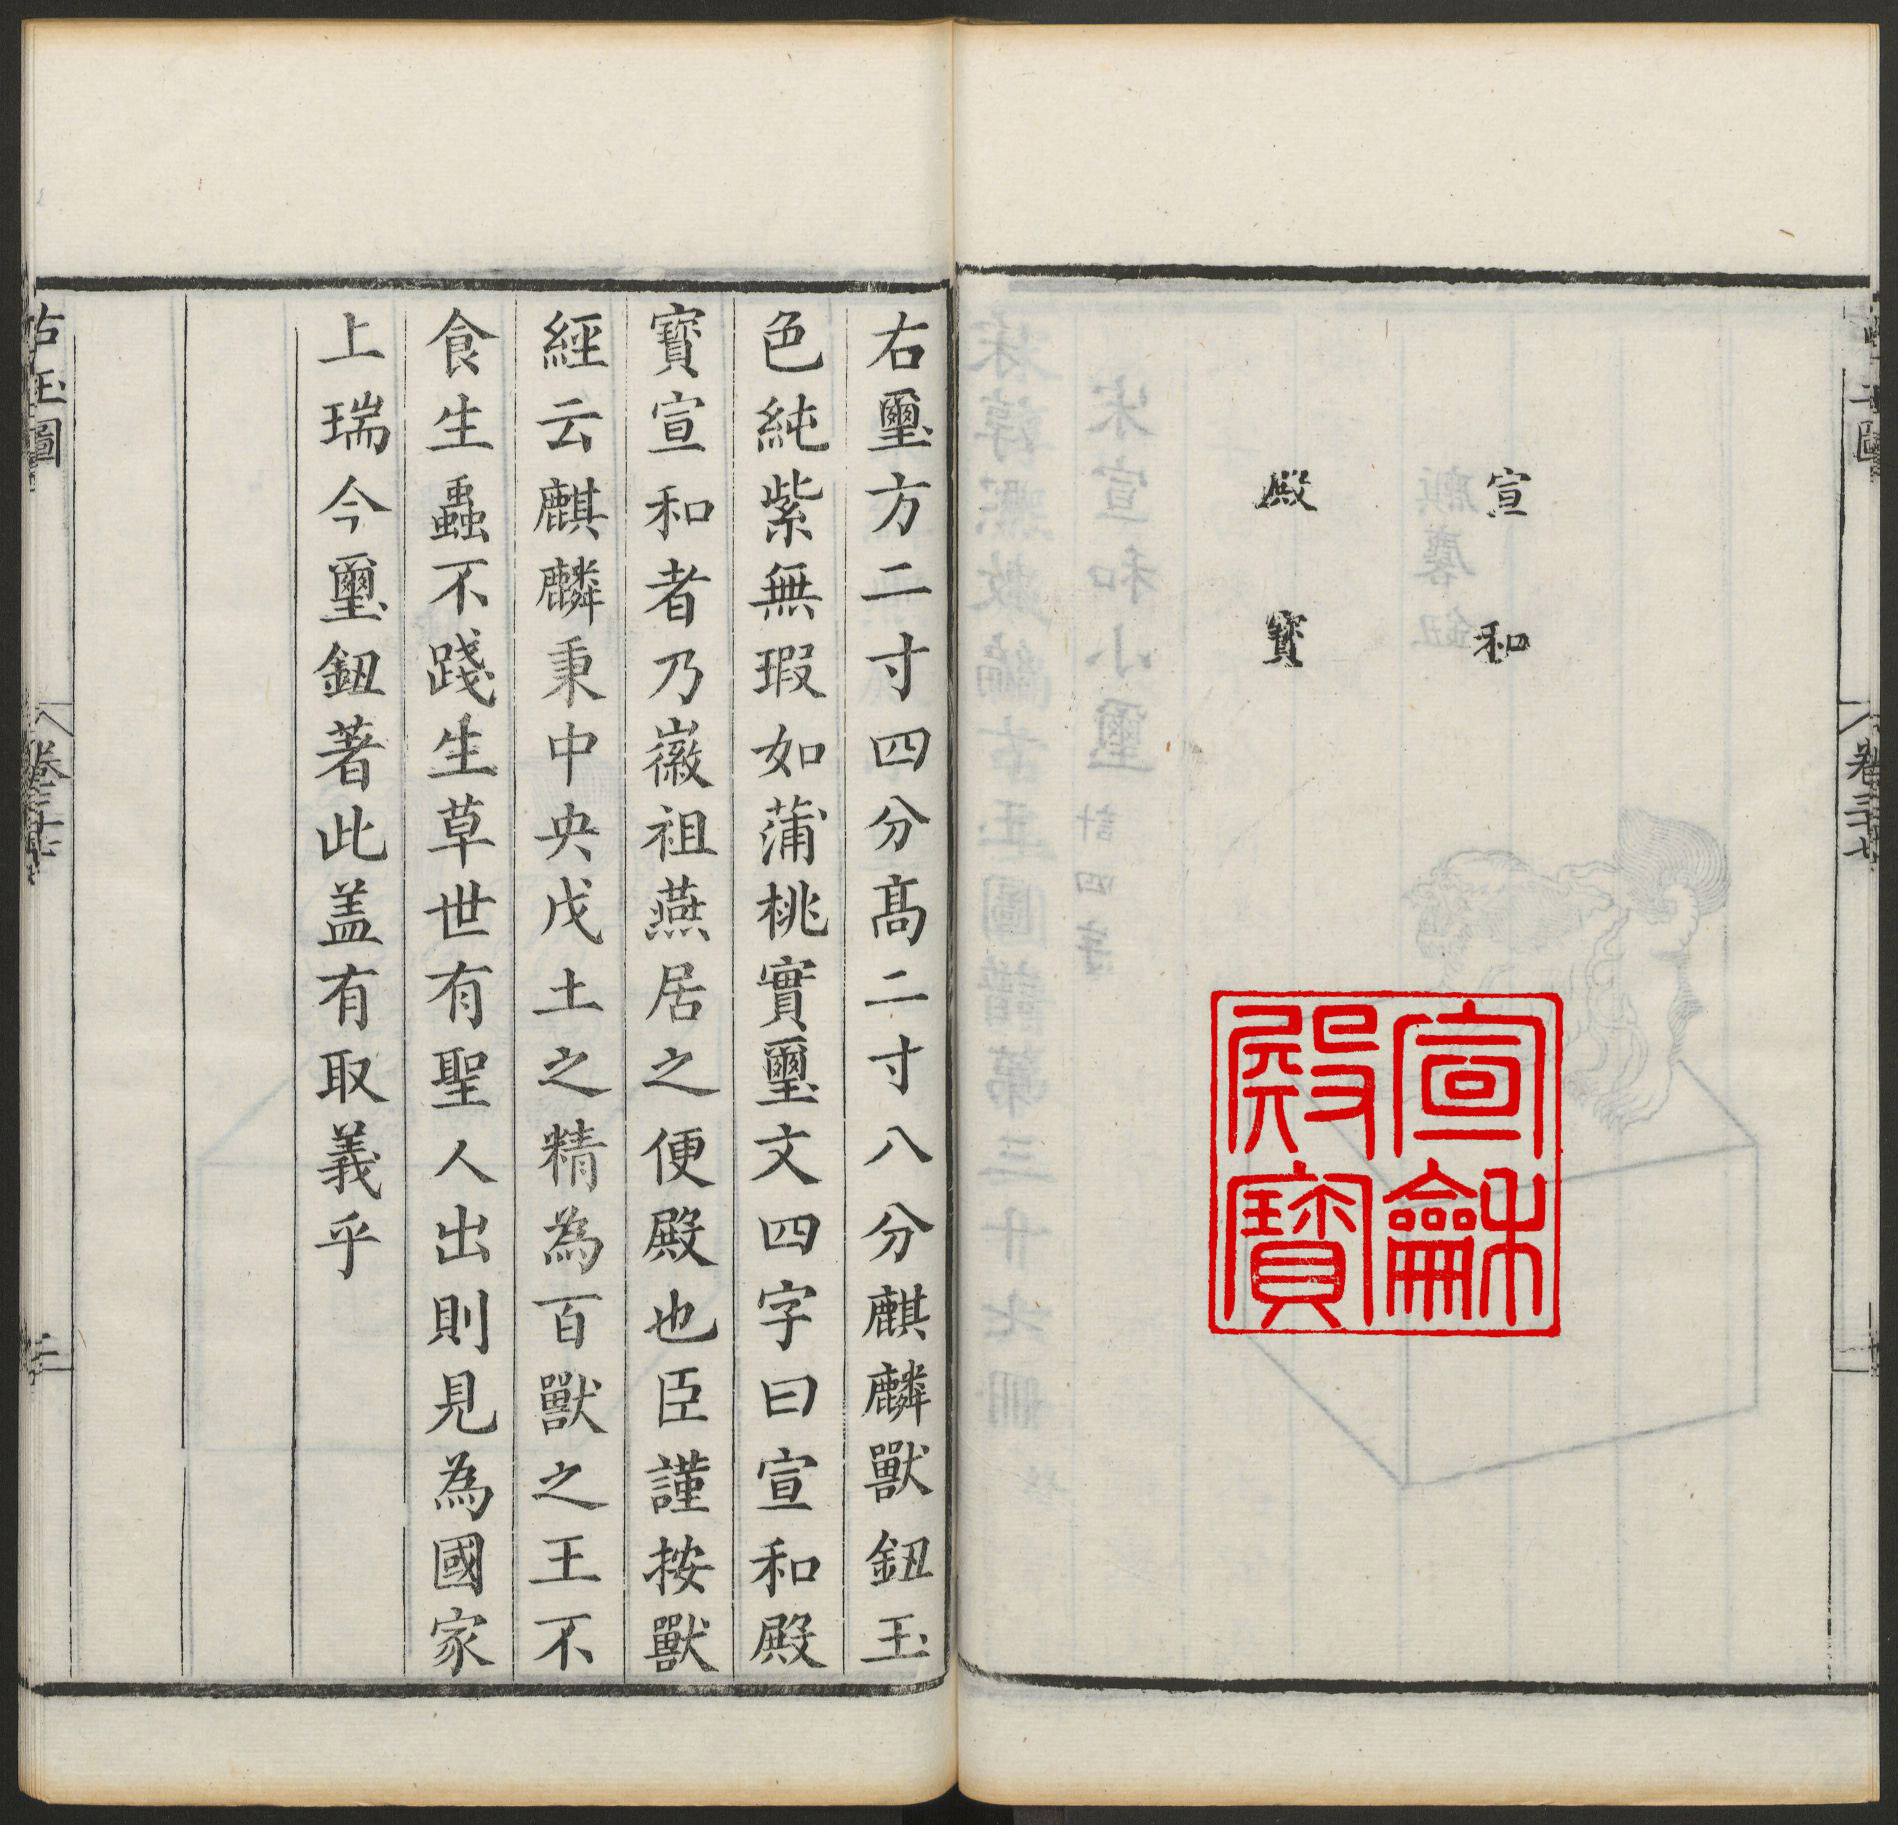 宣和
殿寶
宣龢
殿寶
右璽方二寸四分髙二寸八分麒麟獸鈕玉
色純紫無瑕如蒲桃實璽文四字曰宣和殿
寳宣和者乃徽祖燕居之便殿也臣謹按獸
經云麒麟秉中央戊土之精為百獸之王不
食生蟲不踐生草世有聖人出則見為國家
上瑞今璽鈕著此盖有取義乎
古玉圖
卷三十七